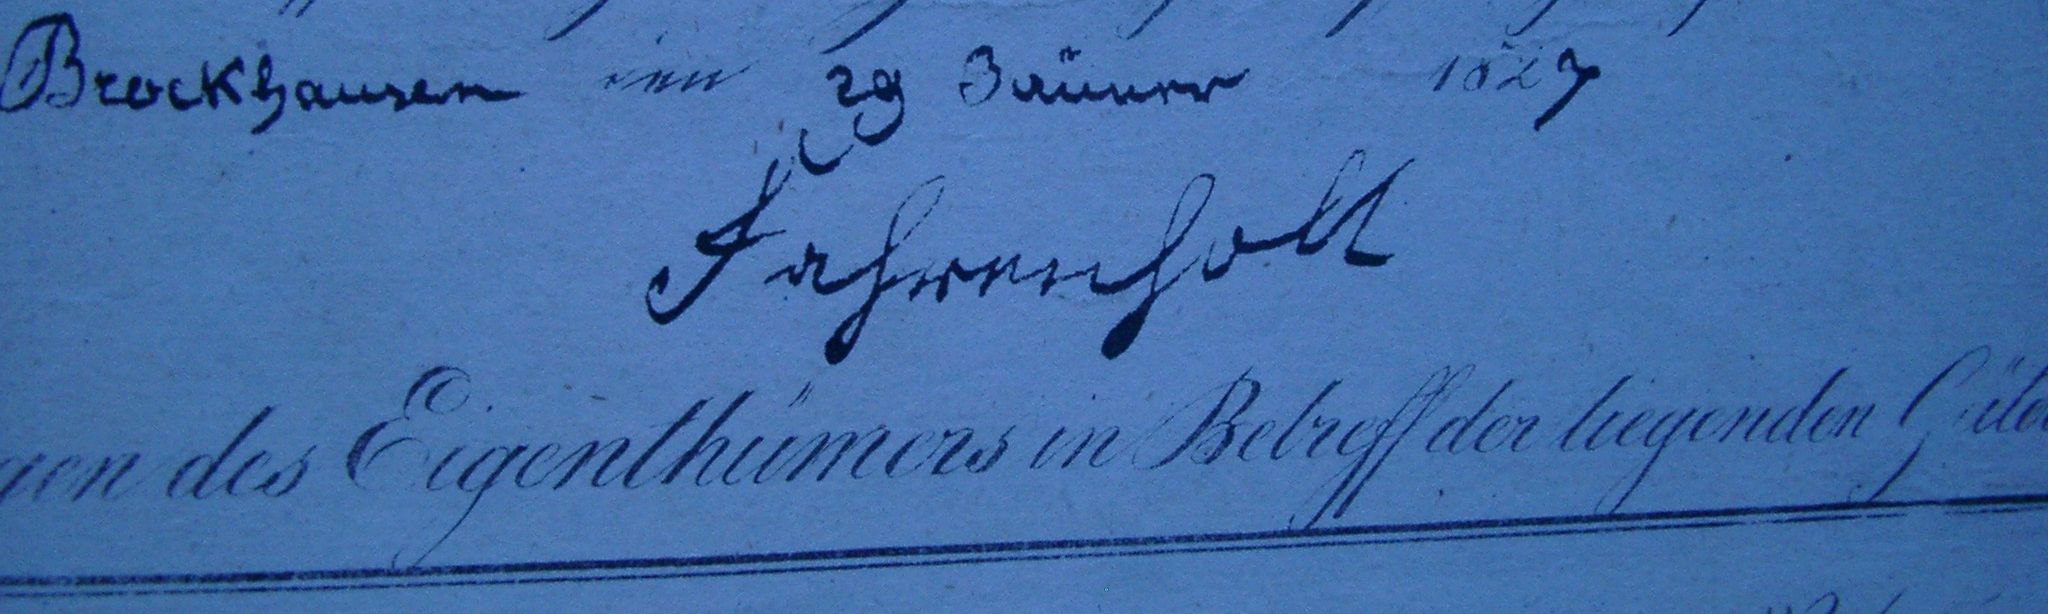 Brockhausen den 29 Jänner 1827
Fahrenholt
gen des Eigenthümers in Betreff der liegenden Güter